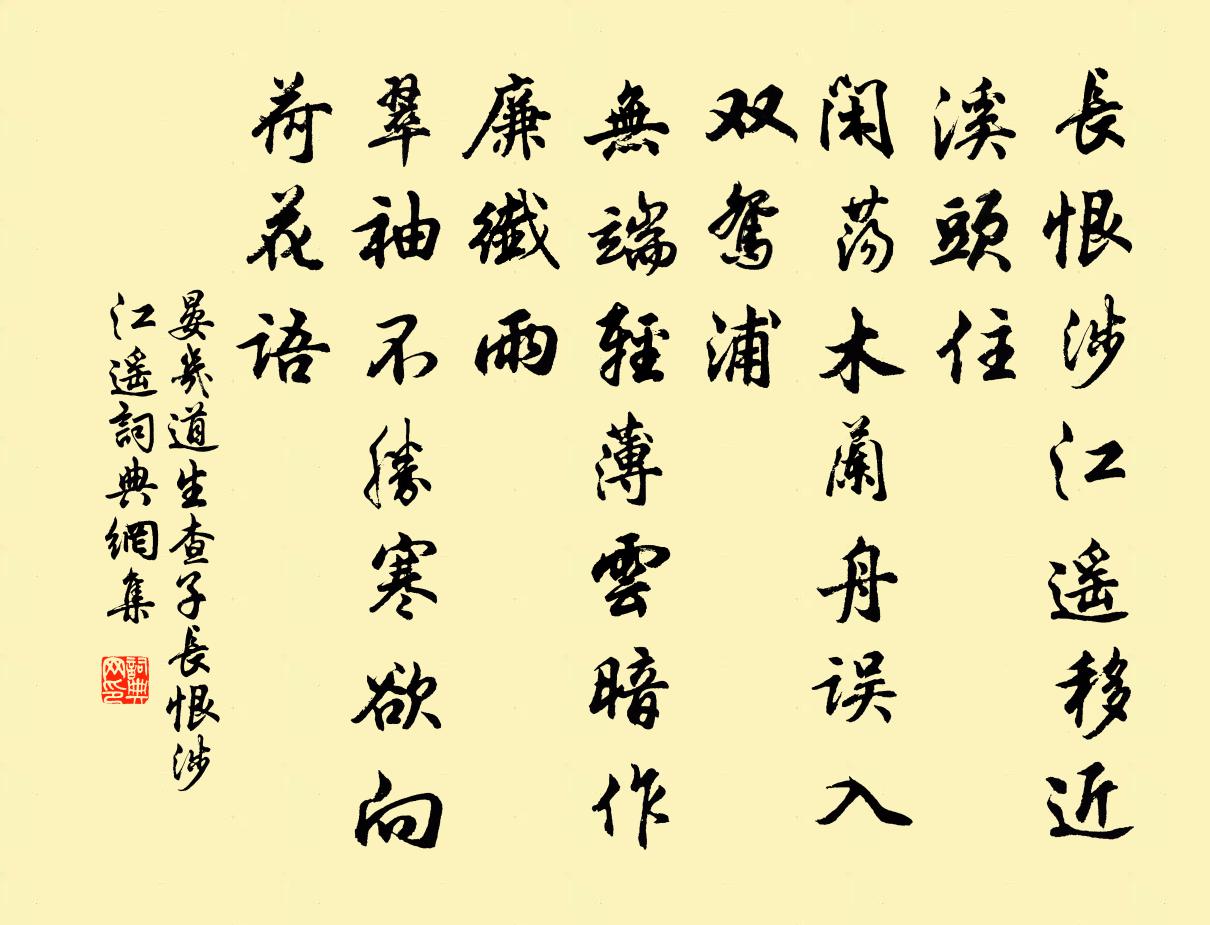 長恨涉江遥移近
溪頭住
閑蕩木蘭舟误入
双鴛浦
無端輕薄雲暗作
廉纖雨
翠袖不勝寒欲向
荷花语
晏幾道生查子長恨涉
江遥詞典網集
詞典
网印